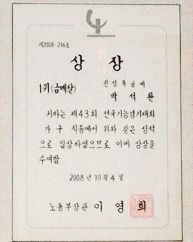 제2008-246호
상장
1위(금메달)
박석환
귀하는 제43회 전국기능경기대회
가구 직종에서 위와 같은 성적
으로 입상하였으므로 이에 상장을
수여함
2008년 10월 4일
노동부장관 이영희